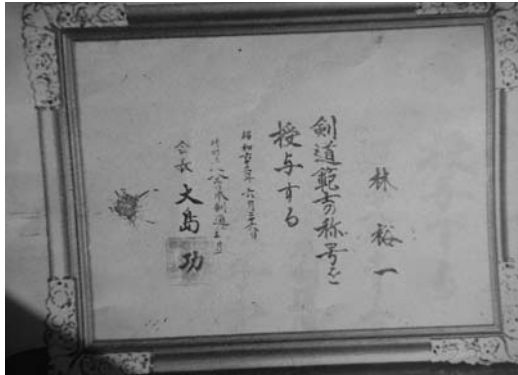 林 裕一
剣道範士の称号を
授与する
昭和 年 六月 日
全日本剣道連盟
会長 大島 功